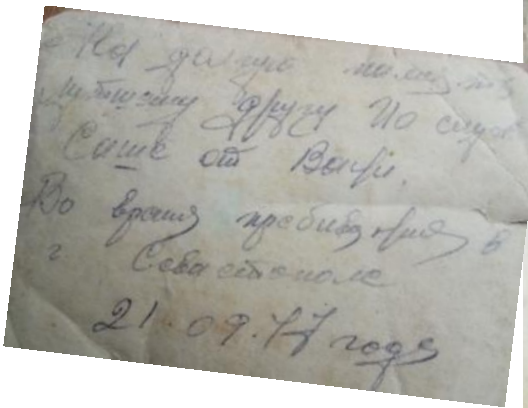 На долгую память
лучшему другу по службе
Саше от Вани.
Во время пребивания в
г Севастополе
21.09.77 года